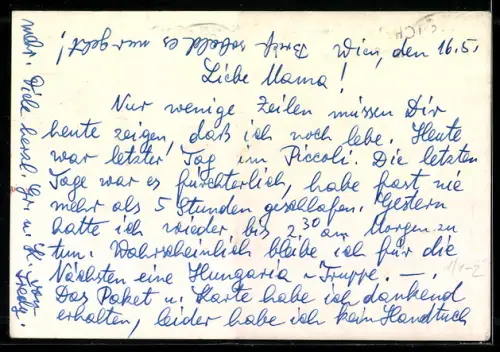 Wien, den 16.5.
Liebe Mama!
Nur wenige Zeilen müssen Dir
heute zeigen, daß ich noch lebe. Heute
war letzter Tag im Piccoli. Die letzten
Tage war es fürchterlich, habe fast nie
mehr als 5 Stunden geschlafen. Gestern
hatte ich wieder bis 2³⁰ am Morgen zu
tun. Wahrscheinlich bleibe ich für die
Nächsten eine Hungaria-Truppe. —.—
Das Paket u. Karte habe ich dankend
erhalten, leider habe ich kein Handtuch
mehr. Viele herzl. Gr. u. K. von
Brief sobald es nur geht!